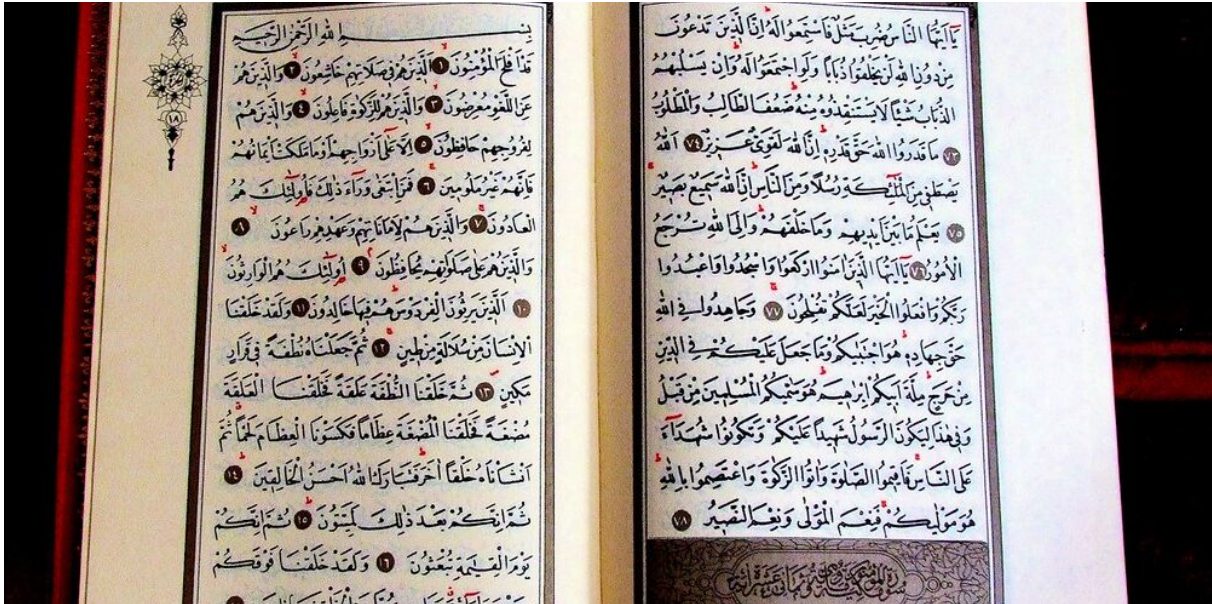 يَٓا اَيُّهَا النَّاسُ ضُرِبَ مَثَلٌ فَاسْتَمِعُوا لَهُ اِنَّ الَّذِينَ تَدْعُونَ
مِنْ دُونِ اللّٰهِ لَنْ يَخْلُقُوا ذُبَاباً وَلَوِ اجْتَمَعُوا لَهُ وَاِنْ يَسْلُبْهُمُ
الذُّبَابُ شَيْـًٔا لَا يَسْتَنْقِذُوهُ مِنْهُ ضَعُفَ الطَّالِبُ وَالْمَطْلُوبُ
٧٣ مَا قَدَرُوا اللّٰهَ حَقَّ قَدْرِهِ اِنَّ اللّٰهَ لَقَوِيٌّ عَزِيزٌ ٧٤ اَللّٰهُ
يَصْطَفِي مِنَ الْمَلٰٓئِكَةِ رُسُلاً وَمِنَ النَّاسِ اِنَّ اللّٰهَ سَمِيعٌ بَصِيرٌ
٧٥ يَعْلَمُ مَا بَيْنَ اَيْدِيهِمْ وَمَا خَلْفَهُمْ وَاِلَى اللّٰهِ تُرْجَعُ
الْاُمُورُ ٧٦ يَٓا اَيُّهَا الَّذِينَ اٰمَنُوا ارْكَعُوا وَاسْجُدُوا وَاعْبُدُوا
رَبَّكُمْ وَافْعَلُوا الْخَيْرَ لَعَلَّكُمْ تُفْلِحُونَ ٧٧ وَجَاهِدُوا فِي اللّٰهِ
حَقَّ جِهَادِهِ هُوَ اجْتَبٰيكُمْ وَمَا جَعَلَ عَلَيْكُمْ فِي الدِّينِ
مِنْ حَرَجٍ مِلَّةَ اَبِيكُمْ اِبْرٰهِيمَ هُوَ سَمّٰيكُمُ الْمُسْلِمِينَ مِنْ قَبْلُ
وَفِي هٰذَا لِيَكُونَ الرَّسُولُ شَهِيداً عَلَيْكُمْ وَتَكُونُوا شُهَدَٓاءَ
عَلَى النَّاسِ فَاَقِيمُوا الصَّلٰوةَ وَاٰتُوا الزَّكٰوةَ وَاعْتَصِمُوا بِاللّٰهِ
هُوَ مَوْلٰيكُمْ فَنِعْمَ الْمَوْلٰى وَنِعْمَ النَّصِيرُ ٧٨
بِسْمِ اللّٰهِ الرَّحْمٰنِ الرَّحِيمِ
قَدْ اَفْلَحَ الْمُؤْمِنُونَ ١ اَلَّذِينَ هُمْ فِي صَلَاتِهِمْ خَاشِعُونَ ٢ وَالَّذِينَ هُمْ
عَنِ اللَّغْوِ مُعْرِضُونَ ٣ وَالَّذِينَ هُمْ لِلزَّكٰوةِ فَاعِلُونَ ٤ وَالَّذِينَ هُمْ
لِفُرُوجِهِمْ حَافِظُونَ ٥ اِلَّا عَلٰٓى اَزْوَاجِهِمْ اَوْ مَا مَلَكَتْ اَيْمَانُهُمْ
فَاِنَّهُمْ غَيْرُ مَلُومِينَ ٦ فَمَنِ ابْتَغٰى وَرَٓاءَ ذٰلِكَ فَاُو۬لٰٓئِكَ هُمُ
الْعَادُونَ ٧ وَالَّذِينَ هُمْ لِاَمَانَاتِهِمْ وَعَهْدِهِمْ رَاعُونَ ٨
وَالَّذِينَ هُمْ عَلٰى صَلَوَاتِهِمْ يُحَافِظُونَ ٩ اُو۬لٰٓئِكَ هُمُ الْوَارِثُونَ
١٠ اَلَّذِينَ يَرِثُونَ الْفِرْدَوْسَ هُمْ فِيهَا خَالِدُونَ ١١ وَلَقَدْ خَلَقْنَا
الْاِنْسَانَ مِنْ سُلَالَةٍ مِنْ طِينٍ ١٢ ثُمَّ جَعَلْنَاهُ نُطْفَةً فِي قَرَارٍ
مَكِينٍ ١٣ ثُمَّ خَلَقْنَا النُّطْفَةَ عَلَقَةً فَخَلَقْنَا الْعَلَقَةَ
مُضْغَةً فَخَلَقْنَا الْمُضْغَةَ عِظَاماً فَكَسَوْنَا الْعِظَامَ لَحْماً ثُمَّ
اَنْشَاْنَاهُ خَلْقاً اٰخَرَ فَتَبَارَكَ اللّٰهُ اَحْسَنُ الْخَالِقِينَ ١٤
ثُمَّ اِنَّكُمْ بَعْدَ ذٰلِكَ لَمَيِّتُونَ ١٥ ثُمَّ اِنَّكُمْ
يَوْمَ الْقِيٰمَةِ تُبْعَثُونَ ١٦ وَلَقَدْ خَلَقْنَا فَوْقَكُمْ
١٨